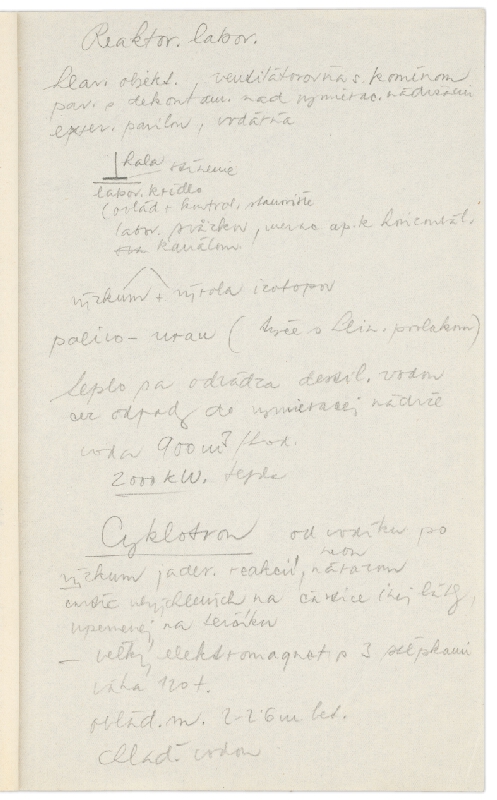 Reaktor. labor.
hlav. objekt., ventilátorovňa s komínom
pav. s dekontam. nad vymierac. nádržami
exper. pavilon, vodáreň
hala
labor. krídlo
(ovlád + kontrol. stanovište
labor. , merac ap. k horizontál.
kanálom
výzkum + výroba izotopov
palivo - uran (tyče s hlin. povlakom)
teplo sa odvádza destil. vodou
cez odpady do vymieracej nádrže
voda 900 m³/hod.
2000 kW. tepla
Cyklotron od vodíku po
neon
výzkum jader. reakcií, nárazom
častíc urýchlených na častice inej látky,
upevnenej na terčíku
- veľký elektromagnet s 3 stĺpkami
váha 120 t.
ovlád. m. 2-2·6 m bet.
chlad. vodou